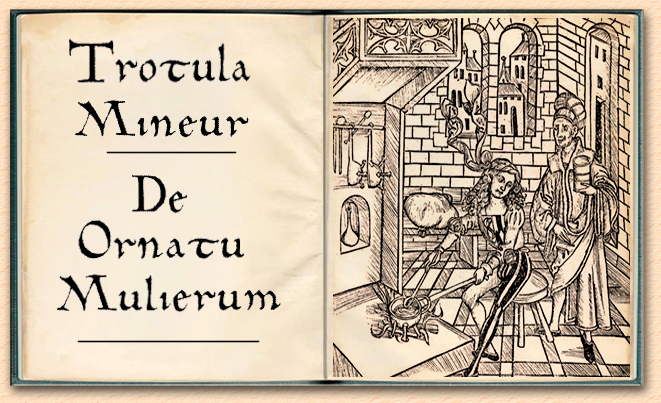 Trotula
Mineur
De
Ornatu
Mulierum